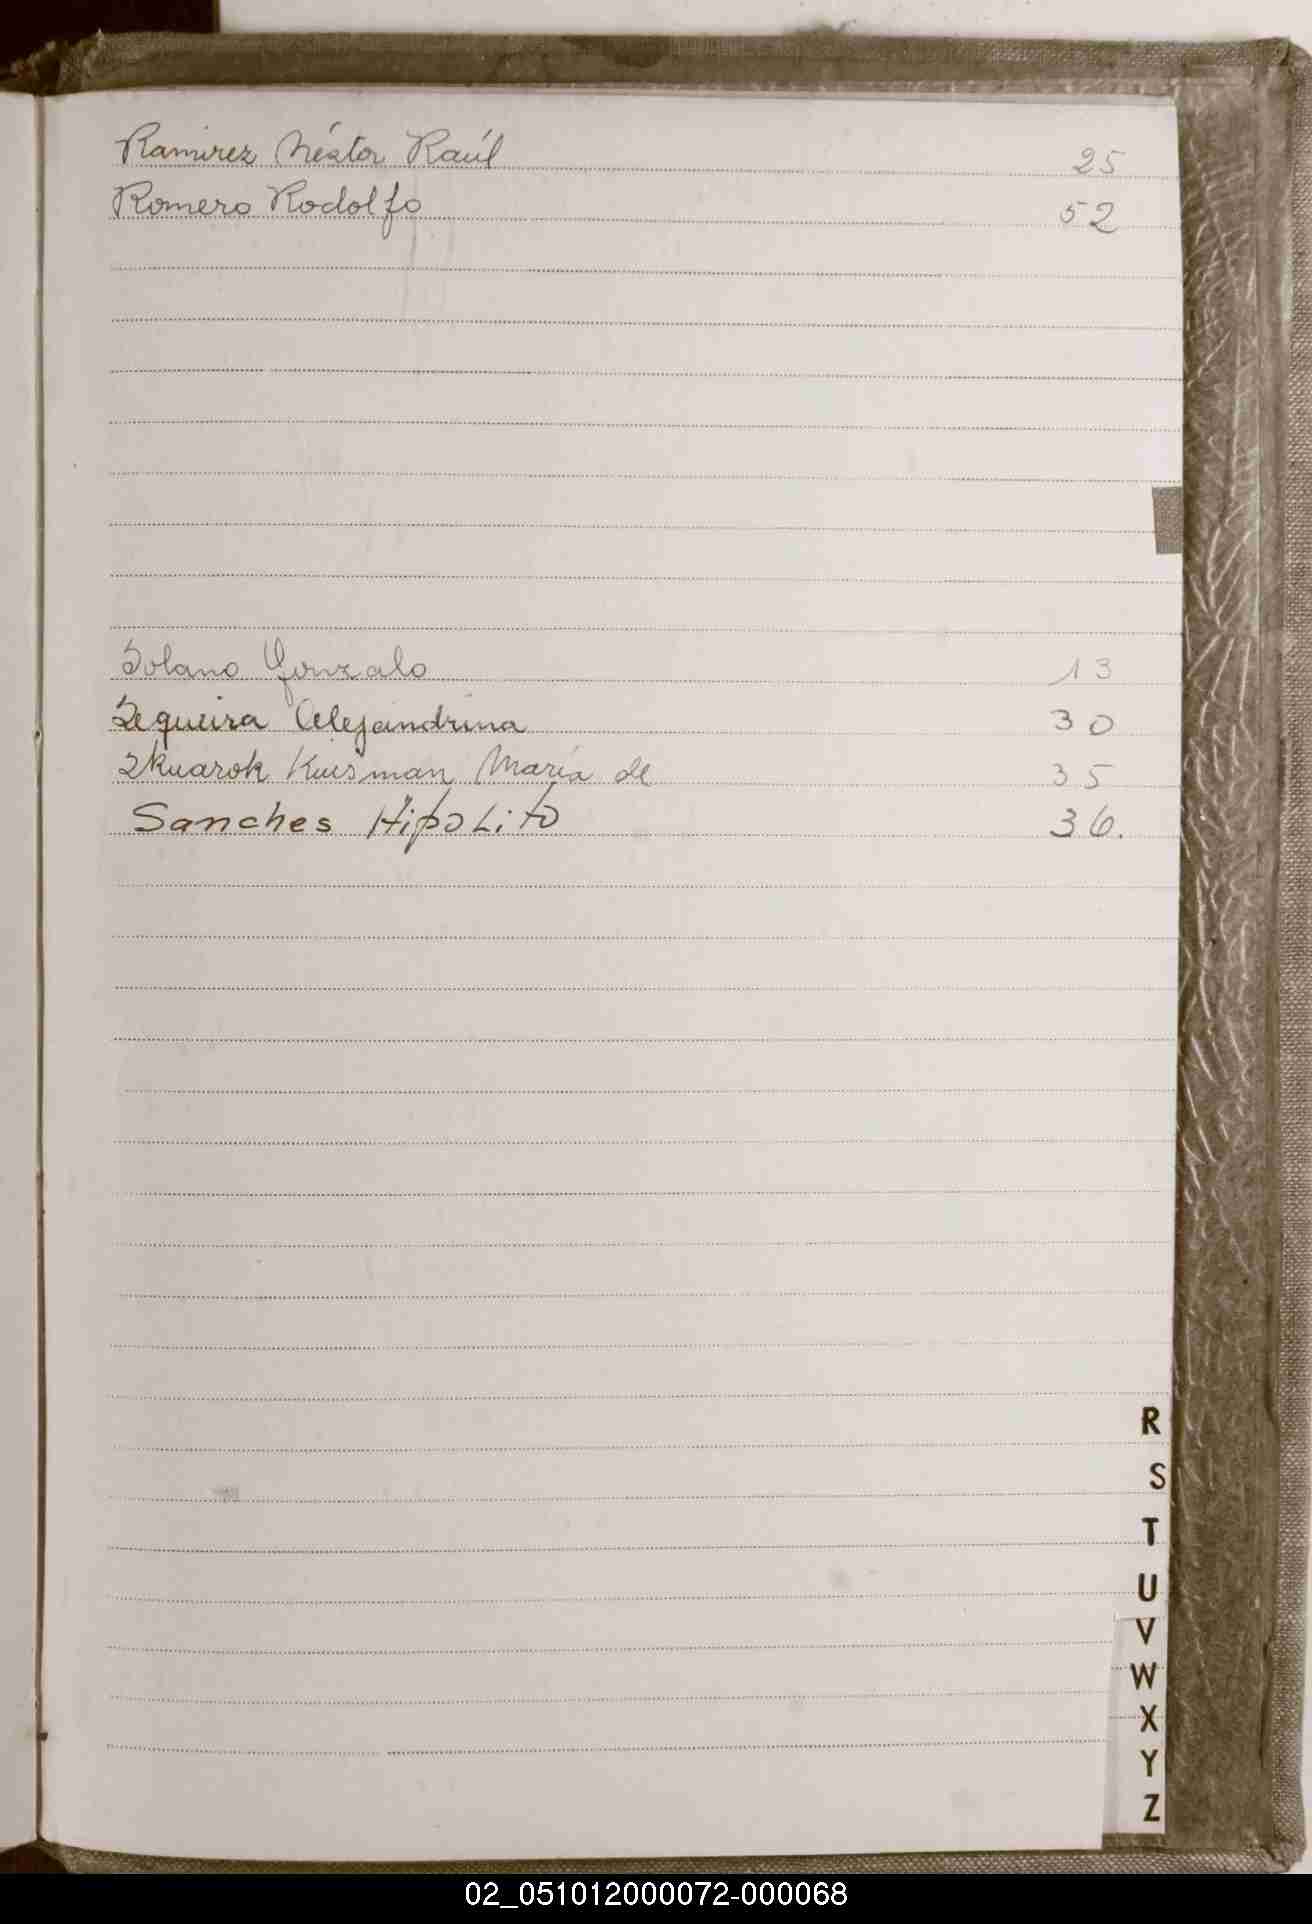 Ramirez Néstor Raúl 25
Romero Rodolfo 52
Solano Gonzalo 13
Sequeira Alejandrina 30
Skuarok Kuisman María de 35
Sanches HipoLito 36.
R
S
T
U
V
W
X
Y
Z
02_051012000072-000068